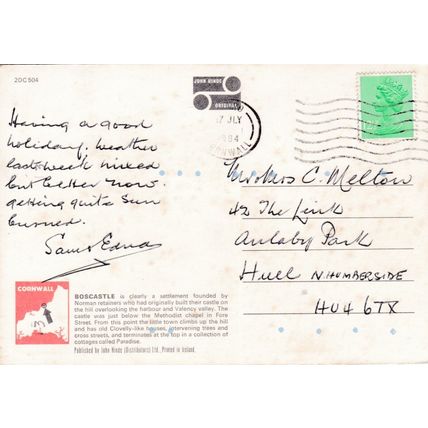 2DC504
JOHN HINDE
ORIGINAL
17 JLY
1984
CORNWALL
Having a good
holiday, weather
last week mixed
but better now.
getting quite sun
burned.
Sam & Edna
C. Melton
42 The Link
Anlaby Park
Hull N. HUMBERSIDE
HU4 6TX
CORNWALL
BOSCASTLE is clearly a settlement founded by
Norman retainers who had originally built their castle on
the hill overlooking the harbour and Valency valley. The
castle was just below the Methodist chapel in Fore
Street. From this point the little town climbs up the hill
and has old Clovelly-like houses, intervening trees and
cross streets, and terminates at the top in a collection of
cottages called Paradise.
Published by John Hinde (Distributors) Ltd. Printed in Ireland.